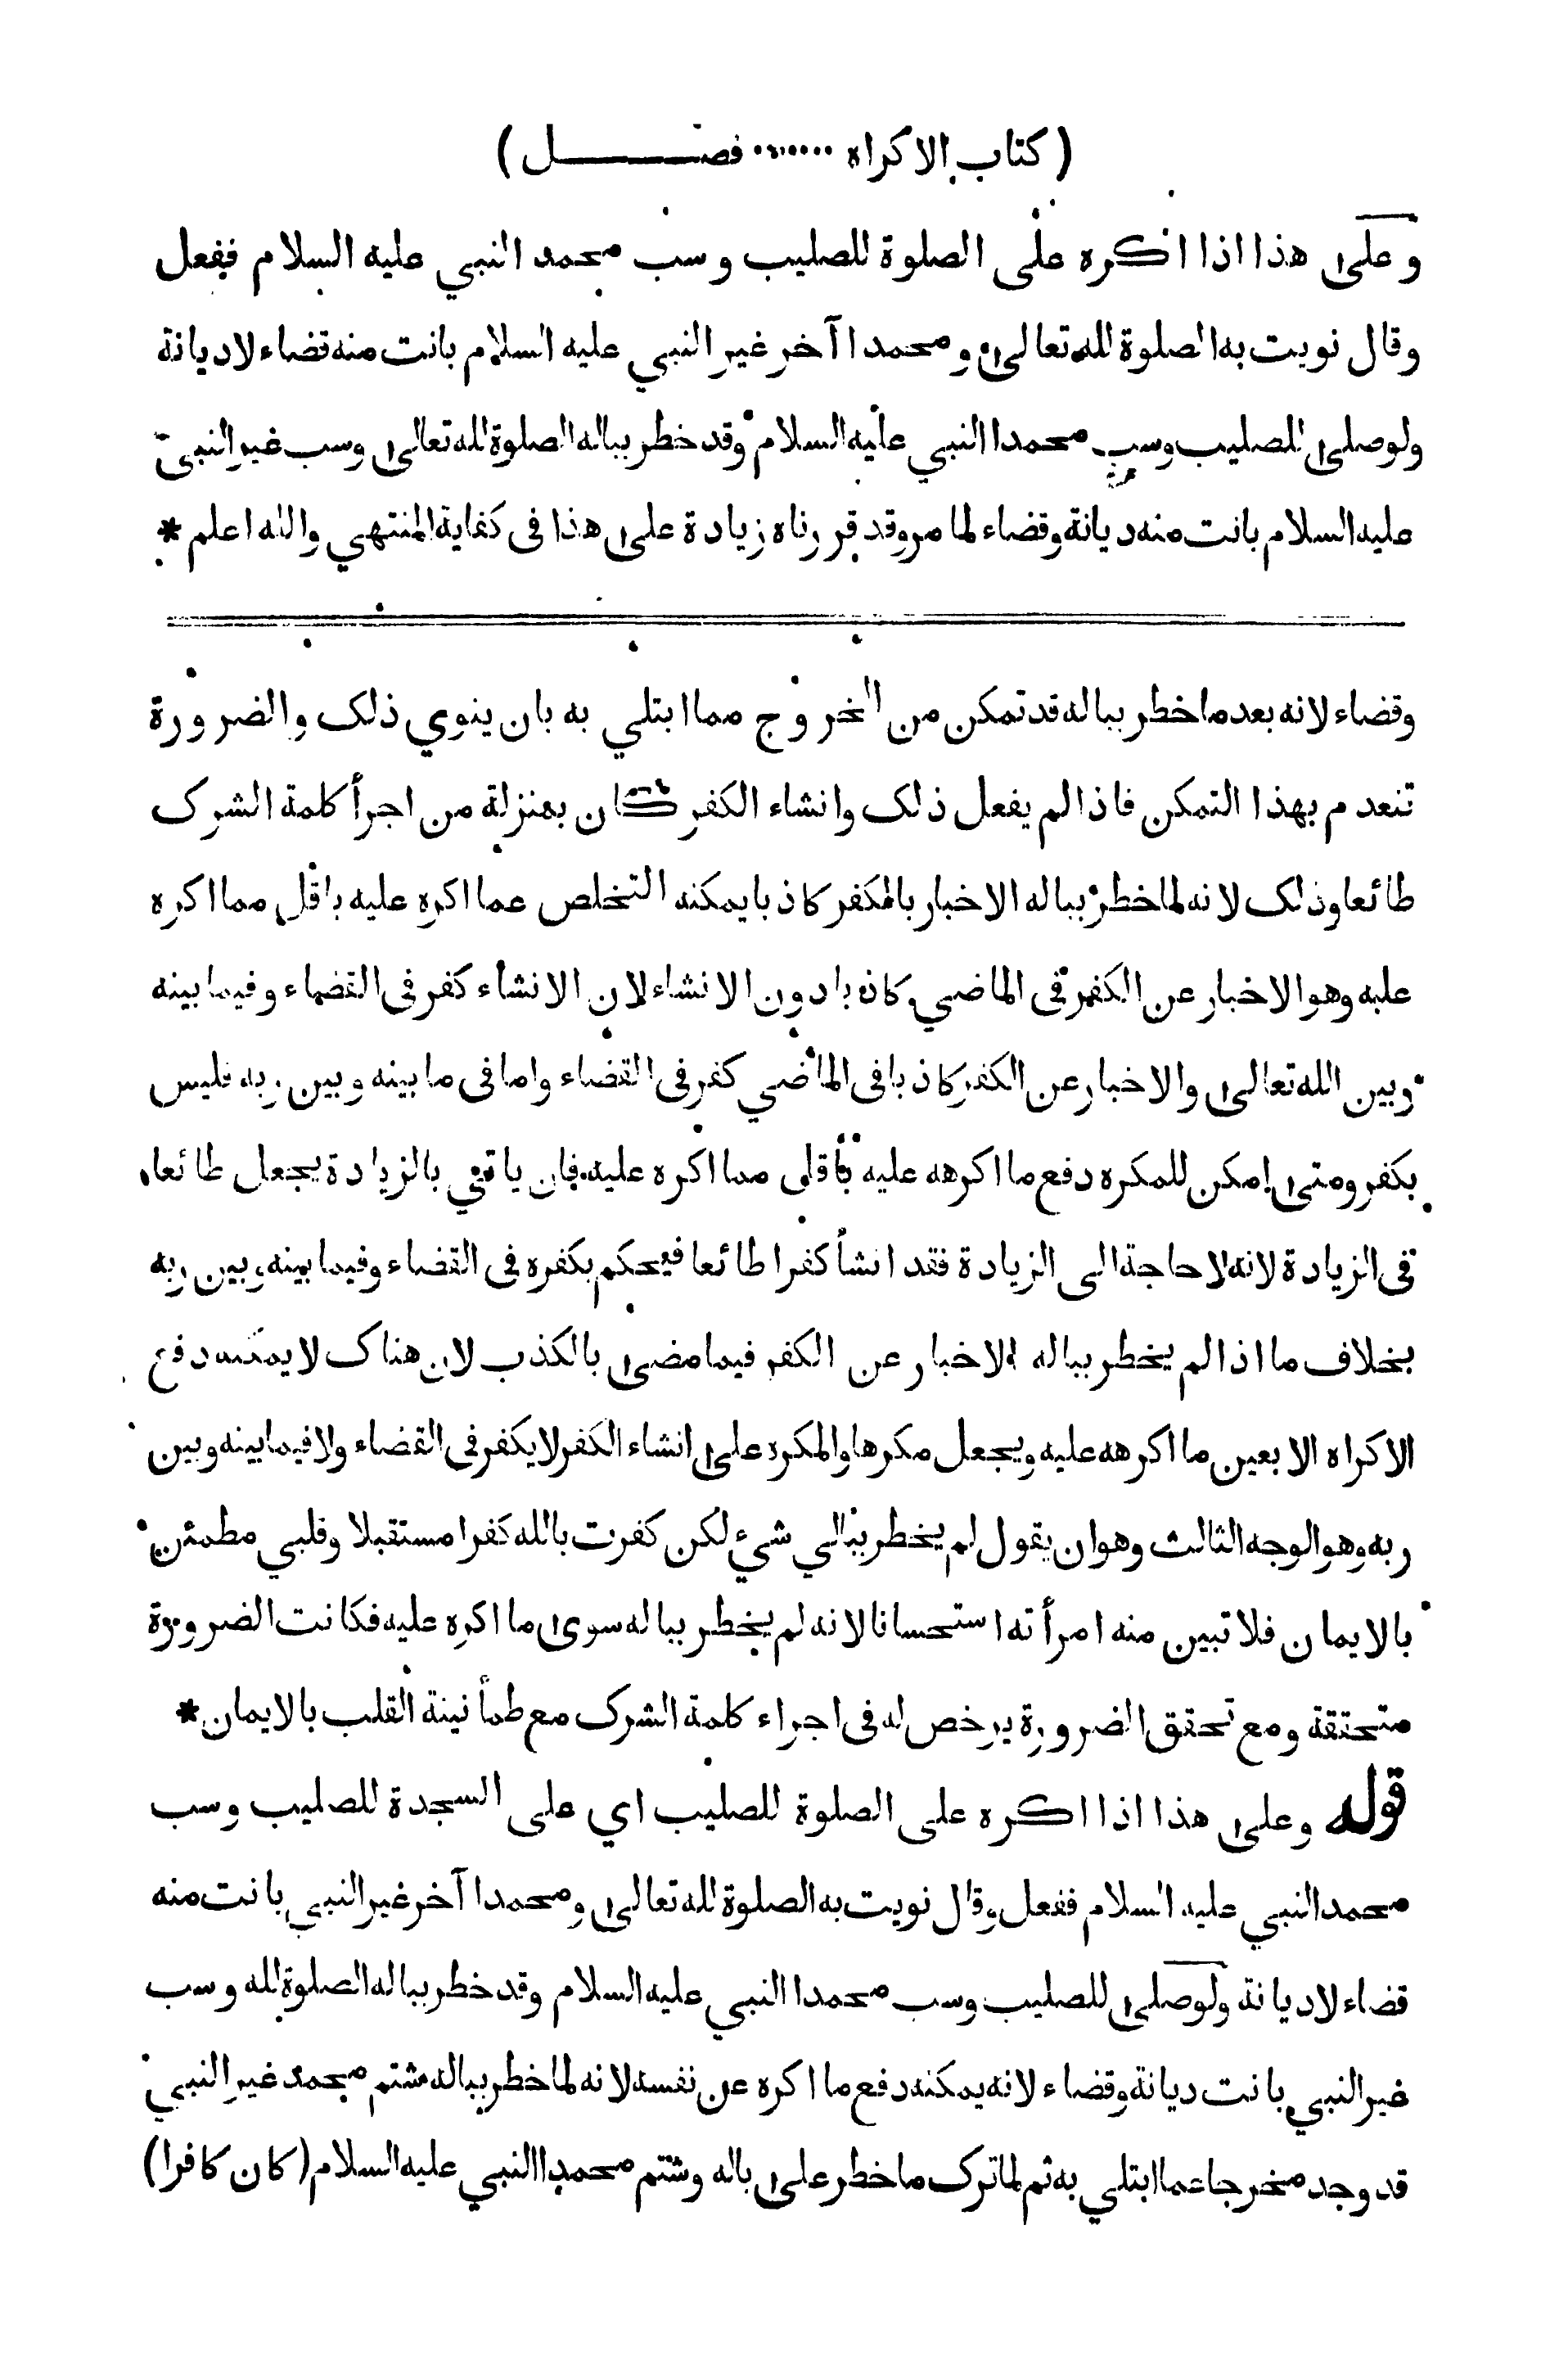 ( كتاب الاكراه ........ فصـــــــل )
وعلى هذا اذا اكره على الصلوة للصليب وسب محمد النبي عليه السلام ففعل
وقال نويت به الصلوة لله تعالى ومحمدا آخر غير النبي عليه السلام بانت منه قضاء لا ديانة
ولو صلى للصليب وسب محمدا النبي عليه السلام وقد خطر بباله الصلوة لله تعالى وسب غير النبي
عليه السلام بانت منه ديانة وقضاء لما مر وقد قررناه زيادة على هذا فى كفاية المنتهي والله اعلم *
وقضاء لانه بعد ما خطر بباله قد تمكن من الخروج مما ابتلي به بان ينوي ذلك والضرورة
تنعدم بهذا التمكن فاذا لم يفعل ذلك وانشاء الكفر كان بمنزلة من اجرأ كلمة الشرك
طائعا وذلك لانه لما خطر بباله الاخبار بالكفر كاذبا يمكنه التخلص عما اكره عليه باقل مما اكره
عليه وهو الاخبار عن الكفر فى الماضي كاذبا دون الانشاء لان الانشاء كفر فى القضاء وفيما بينه
وبين الله تعالى والاخبار عن الكفر كاذبا فى الماضي كفر فى القضاء واما فى ما بينه وبين ربه فليس
بكفر ومتى امكن للمكره دفع ما اكرهه عليه باقل مما اكره عليه فان ياتي بالزيادة يجعل طائعا
فى الزيادة لانه لا حاجة الى الزيادة فقد انشأ كفرا طائعا فيحكم بكفره فى القضاء وفيما بينه وبين ربه
بخلاف ما اذا لم يخطر بباله الاخبار عن الكفر فيما مضى بالكذب لان هناك لا يمكنه دفع
الاكراه الا بعين ما اكرهه عليه ويجعل مكرها والمكره على انشاء الكفر لا يكفر فى القضاء ولا فيما بينه وبين
ربه وهو الوجه الثالث وهو ان يقول لم يخطر ببالي شيء لكن كفرت بالله كفرا مستقبلا وقلبي مطمئن
بالايمان فلا تبين منه امرأته استحسانا لانه لم يخطر بباله سوى ما اكره عليه فكانت الضرورة
متحققة ومع تحقق الضرورة يرخص له فى اجراء كلمة الشرك مع طمأنينة القلب بالايمان *
قوله وعلى هذا اذا اكره على الصلوة للصليب اي على السجدة للصليب وسب
محمد النبي عليه السلام ففعل وقال نويت به الصلوة لله تعالى ومحمدا آخر غير النبي بانت منه
قضاء لا ديانة ولو صلى للصليب وسب محمدا النبي عليه السلام وقد خطر بباله الصلوة لله وسب
غير النبي بانت ديانة وقضاء لانه يمكنه دفع ما اكره عن نفسه لانه لما خطر بباله شتم محمد غير النبي
قد وجد مخرجا عما ابتلي به ثم لما ترك ما خطر على باله وشتم محمدا النبي عليه السلام ( كان كافرا )